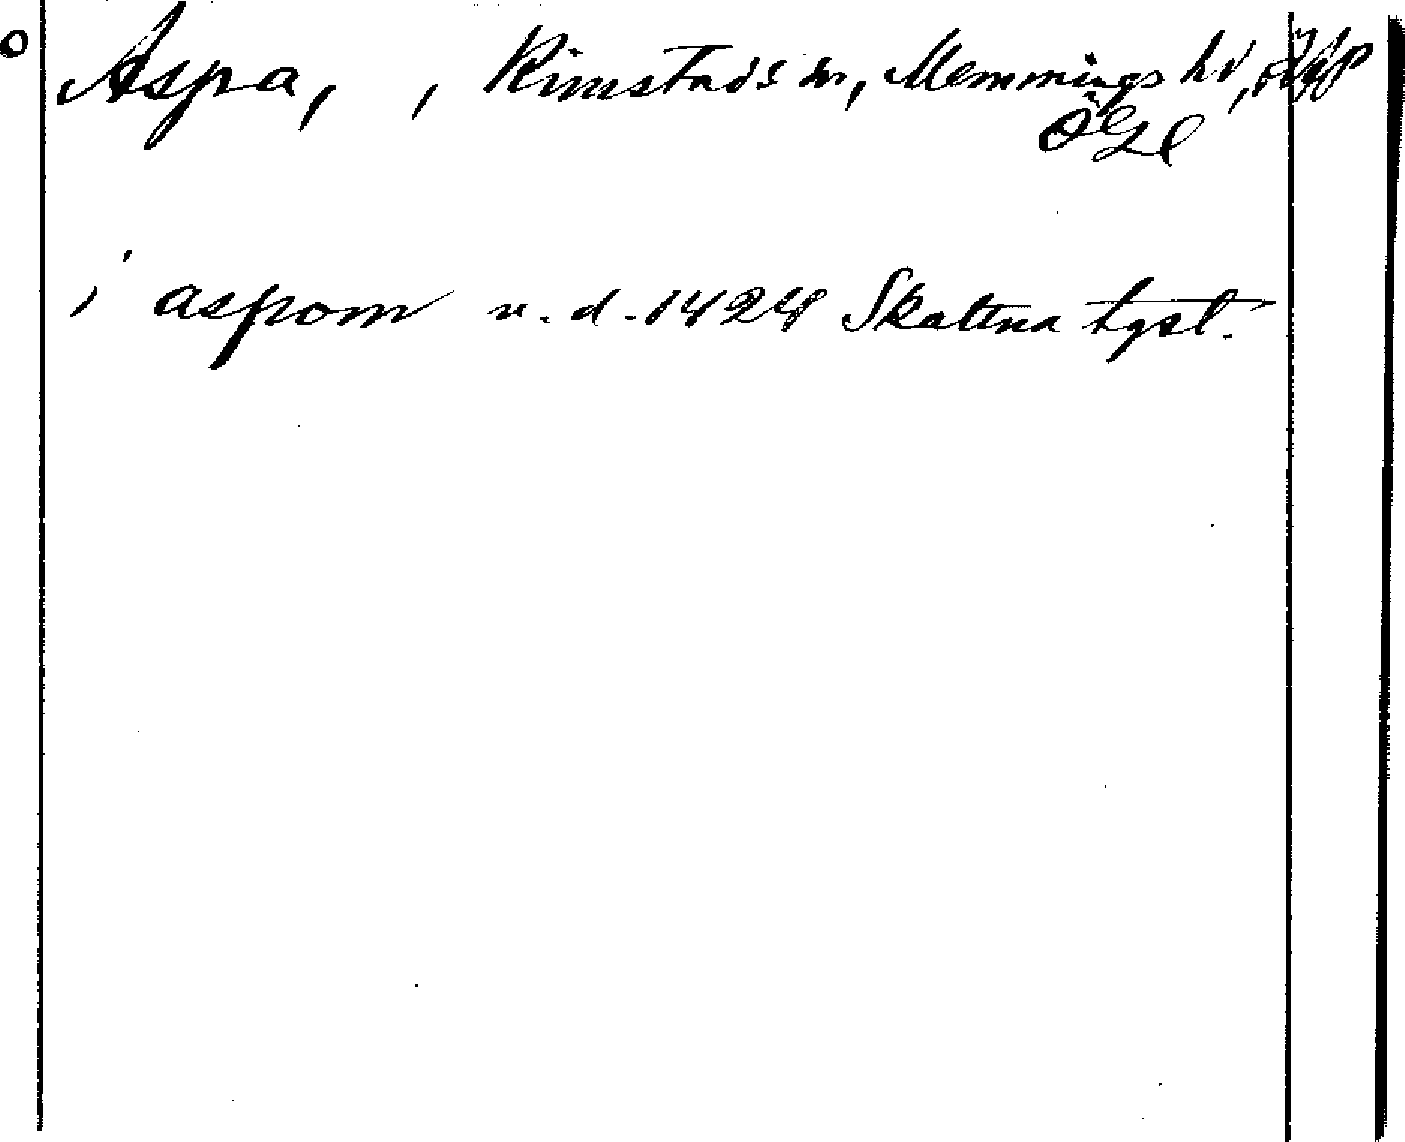 Aspa, , Rimstads sn, Memmings hd,
ÖGl
i aspom u.d. 1424 Skaltna tgst.